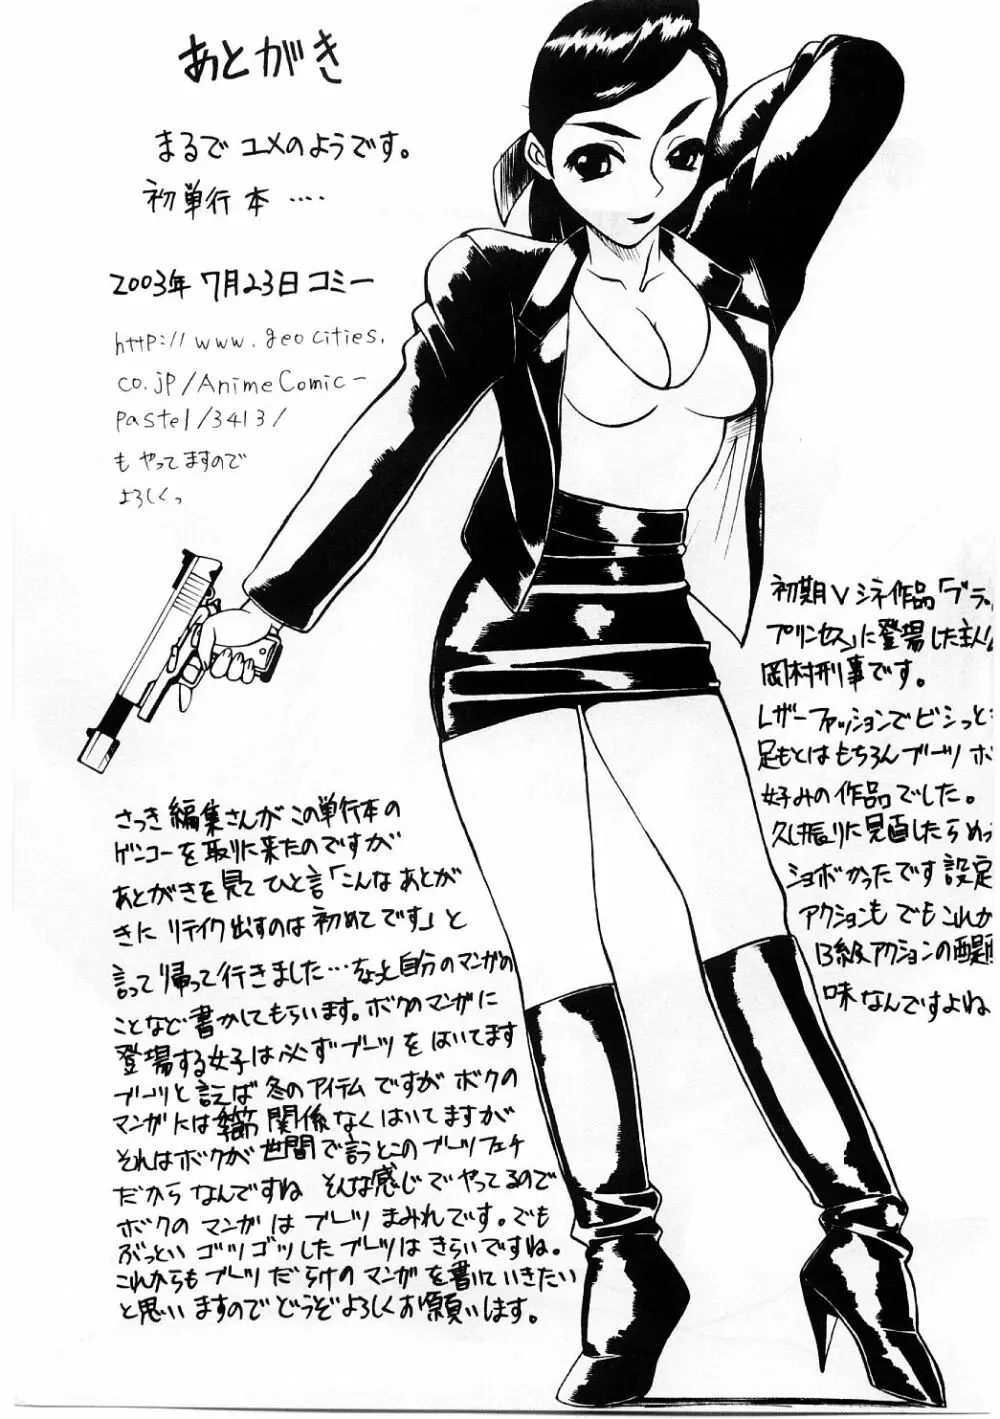 あとがき
まるでユメのようです。
初単行本 ‥‥
2003年7月23日コミー
http://www.geocities.
co.jp/AnimeComic-
Pastel/3413/
もやってますので
よろしくっ
初期Vシネ作品「ブラッ
プリンセス」に登場した主人
岡村刑事です。
レザーファッションでビシっと
足もとはもちろんブーツ ボ
好みの作品でした。
久し振りに見直したらめっ
ショボかったです 設定
アクションも でもこれが
B級アクションの醍醐
味なんですよね
さっき編集さんがこの単行本の
ゲンコーを取りに来たのですが
あとがきを見てひと言「こんなあとが
きに リテイク出すのは初めてです」と
言って帰って行きました…なっと自分のマンガの
ことなど書かしてもらいます。ボクのマンガに
登場する女子は必ずブーツをはいてます
ブーツと言えば冬のアイテムですがボクの
マンガには季節関係なくはいてますが
それはボクが世間で言うとこのブーツフェチ
だからなんですね そんな感じでやってるので
ボクのマンガはブーツまみれです。でも
ぶっといゴツゴツしたブーツはきらいですね。
これからもブーツだらけのマンガを書いていきたい
と思いますのでどうぞよろしくお願いします。